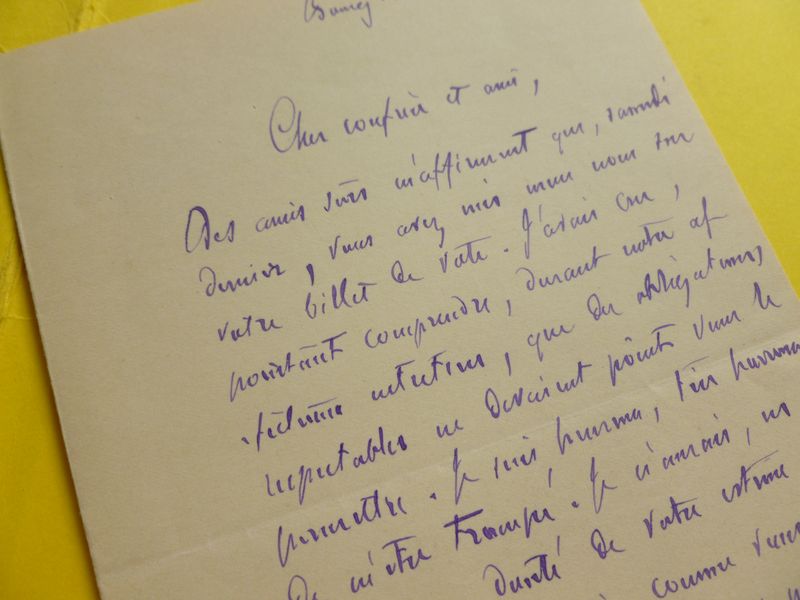 Cher confrère et ami,
Des amis sûrs m'affirment que, samedi
dernier, vous avez mis mon nom sur
votre billet de vote. J'avais cru,
pourtant comprendre, durant notre af
fectueux entretien, que des obligations,
respectables ne devaient point vous le
permettre. Je suis heureux, très heureux
de m'être trompé. Je n'aurais,
dureté de votre estime
comme vous